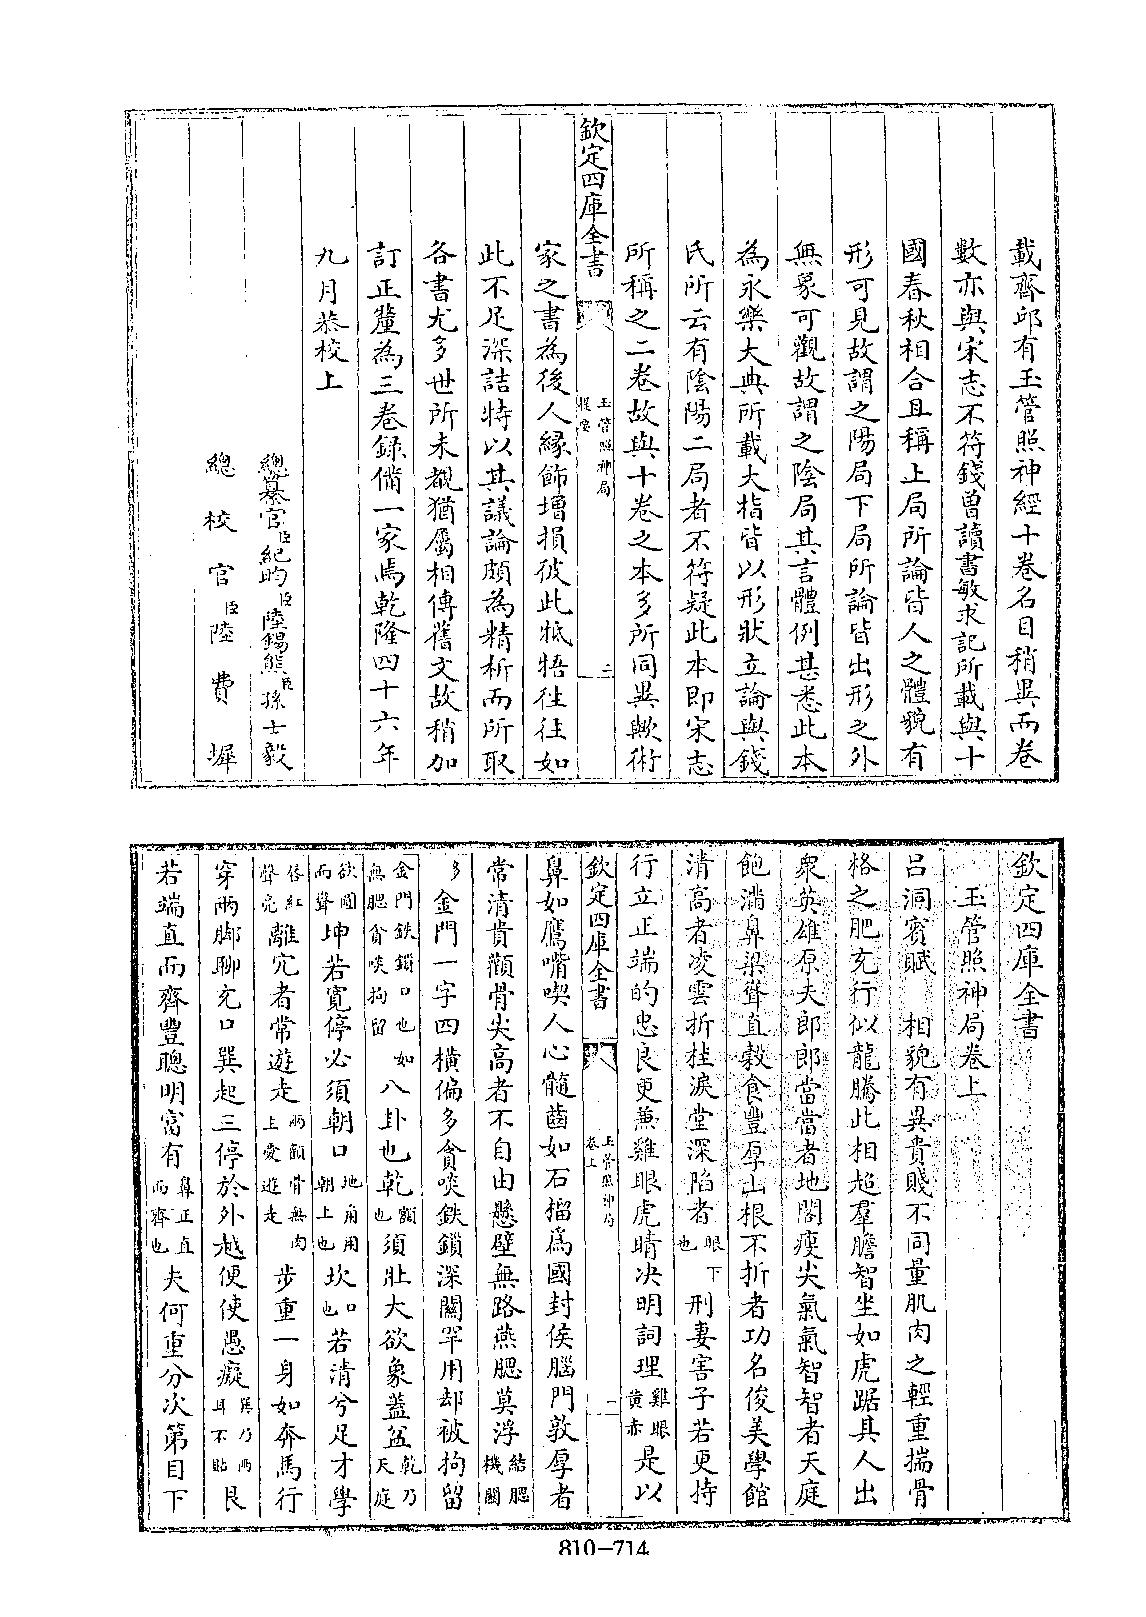 載齊邱有玉管照神經十卷名目稍異而卷
數亦與宋志不符錢曾讀書敏求記所載與十
國春秋相合且稱上局所論皆人之體貌有
形可見故謂之陽局下局所論皆出形之外
無象可觀故謂之陰局其言體例甚悉此本
為永樂大典所載大指皆以形狀立論與錢
氏所云有陰陽二局者不符疑此本即宋志
所稱之二卷故與十卷之本多所同異歟術
欽定四庫全書
玉管照神局
提要
二
家之書為後人緣飾增損彼此牴牾往往如
此不足深詰特以其議論頗為精析而所取
各書尤多世所未覩猶屬相傳舊文故稍加
訂正釐為三卷錄備一家焉乾隆四十六年
九月恭校上
總纂官臣紀昀臣陸錫熊臣孫士毅
總校官臣陸費墀
欽定四庫全書
玉管照神局卷上
呂洞賓賦 相貌有異貴賤不同量肌肉之輕重揣骨
格之肥充行似龍騰此相超羣膽智坐如虎踞其人出
衆英雄原夫郎郎當當者地閣瘦尖氣氣智智者天庭
飽滿鼻梁聳直榖食豐厚山根不折者功名俊美學館
清高者凌雲折桂淚堂深陷者眼下也刑妻害子若更持
行立正端的忠良更兼雞眼虎睛决明詞理雞眼黄赤是以
欽定四庫全書
玉管照神局
卷上
一
鼻如鷹嘴喫人心髓齒如石榴為國封侯腦門敦厚者
常清貴顴骨尖高者不自由懸壁無路燕腮莫浮結腮機關
多金門一字四横偏多貪啖鉄鎖深關罕用却被拘留
金門鉄鎖口也如無腮貪啖拘留八卦也乾額也須壯大欲象蓋盆乾乃天庭
欲圓而聲坤若寛停必須朝口地角用朝上也坎口也若清兮足才學
唇紅聲亮離宂者常遊走兩顴骨無肉上愛遊走步重一身如奔馬行
穿兩脚聊充口巽起三停於外越便使愚癡巽乃兩耳不貼艮
若端直而齊豐聰明富有鼻正直而齊也夫何重分次第目下
810-714